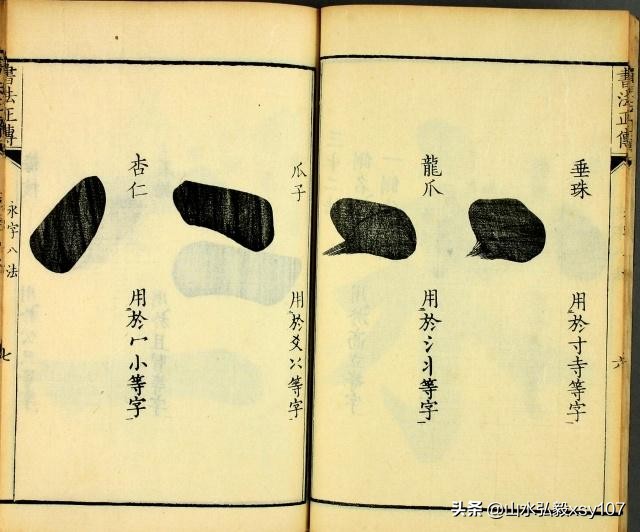 書法正傳
垂珠
用於寸寺等字
龍爪
用於氵丬等字
瓜子
用於爻等字
杏仁
用於冖小等字
書法正傳
永字八法
七
六
头条 @山水弘毅xsy107